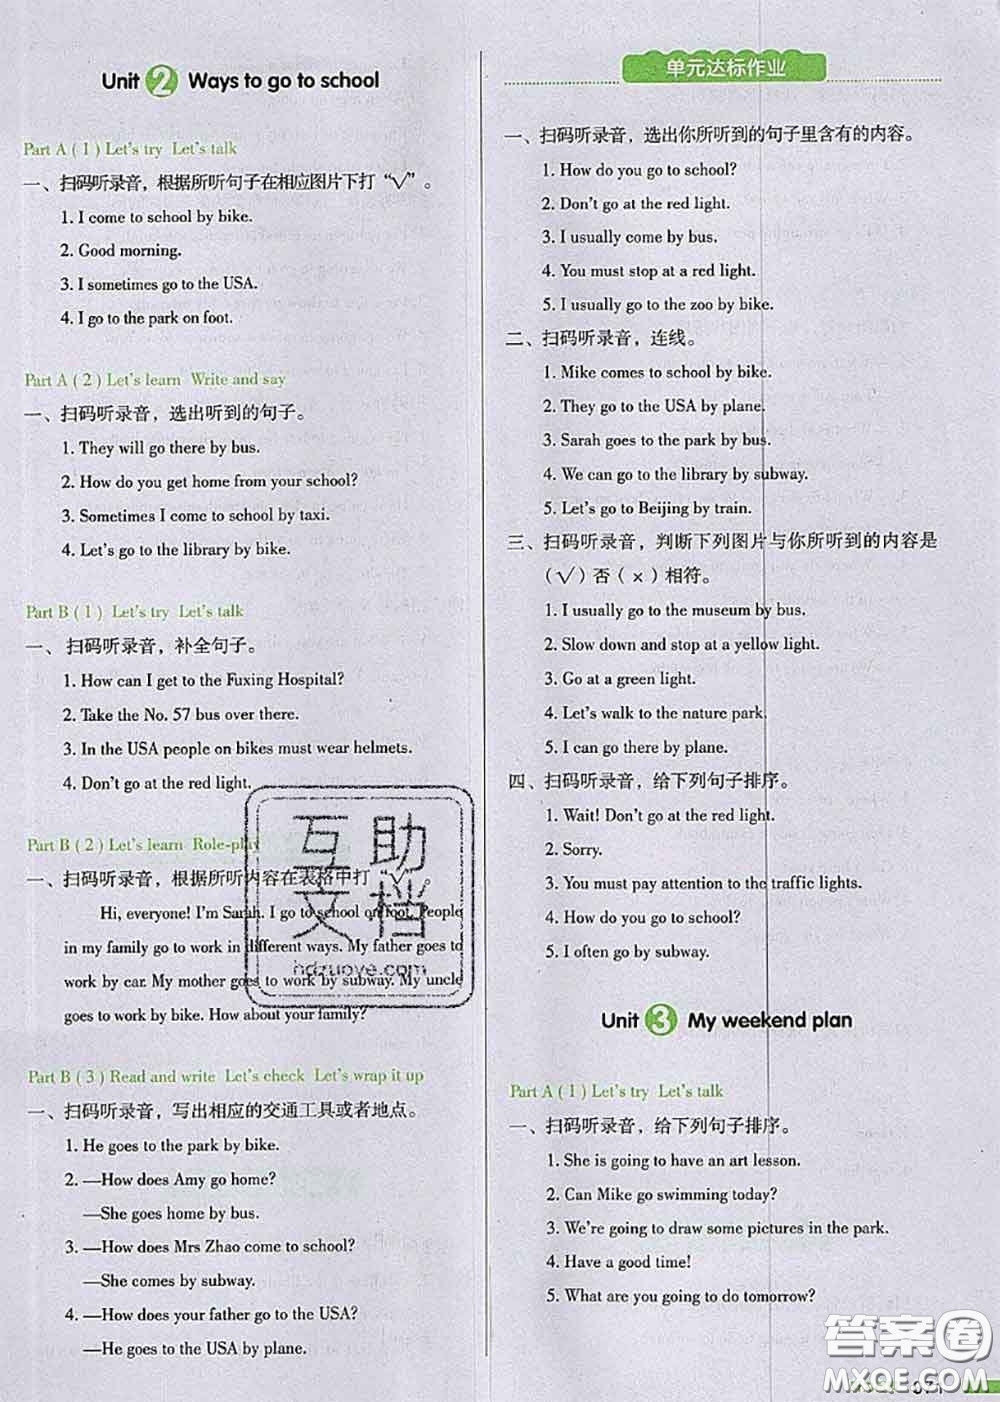 Unit 2 Ways to go to school
Part A ( 1 ) Let's try Let's talk
一、扫码听录音，根据所听句子在相应图片下打“√”。
1. I come to school by bike.
2. Good morning.
3. I sometimes go to the USA.
4. I go to the park on foot.
Part A ( 2 ) Let's learn Write and say
一、扫码听录音，选出听到的句子。
1. They will go there by bus.
2. How do you get home from your school?
3. Sometimes I come to school by taxi.
4. Let's go to the library by bike.
Part B ( 1 ) Let's try Let's talk
一、扫码听录音，补全句子。
1. How can I get to the Fuxing Hospital?
2. Take the No. 57 bus over there.
3. In the USA people on bikes must wear helmets.
4. Don't go at the red light.
Part B ( 2 ) Let's learn Role-play
一、扫码听录音，根据所听内容在表格中打“√”。
Hi, everyone! I'm Sarah. I go to school on foot. People
in my family go to work in different ways. My father goes to
work by car. My mother goes to work by subway. My uncle
goes to work by bike. How about your family?
Part B ( 3 ) Read and write Let's check Let's wrap it up
一、扫码听录音，写出相应的交通工具或者地点。
1. He goes to the park by bike.
2. —How does Amy go home?
—She goes home by bus.
3. —How does Mrs Zhao come to school?
—She comes by subway.
4. —How does your father go to the USA?
—He goes to the USA by plane.
单元达标作业
一、扫码听录音，选出你所听到的句子里含有的内容。
1. How do you go to school?
2. Don't go at the red light.
3. I usually come by bus.
4. You must stop at a red light.
5. I usually go to the zoo by bike.
二、扫码听录音，连线。
1. Mike comes to school by bike.
2. They go to the USA by plane.
3. Sarah goes to the park by bus.
4. We can go to the library by subway.
5. Let's go to Beijing by train.
三、扫码听录音，判断下列图片与你所听到的内容是
（√）否（×）相符。
1. I usually go to the museum by bus.
2. Slow down and stop at a yellow light.
3. Go at a green light.
4. Let's walk to the nature park.
5. I can go there by plane.
四、扫码听录音，给下列句子排序。
1. Wait! Don't go at the red light.
2. Sorry.
3. You must pay attention to the traffic lights.
4. How do you go to school?
5. I often go by subway.
Unit 3 My weekend plan
Part A ( 1 ) Let's try Let's talk
一、扫码听录音，给下列句子排序。
1. She is going to have an art lesson.
2. Can Mike go swimming today?
3. We're going to draw some pictures in the park.
4. Have a good time!
5. What are you going to do tomorrow?
互助
文档
hdzuoye.com
答案圈
MXQE.COM
071